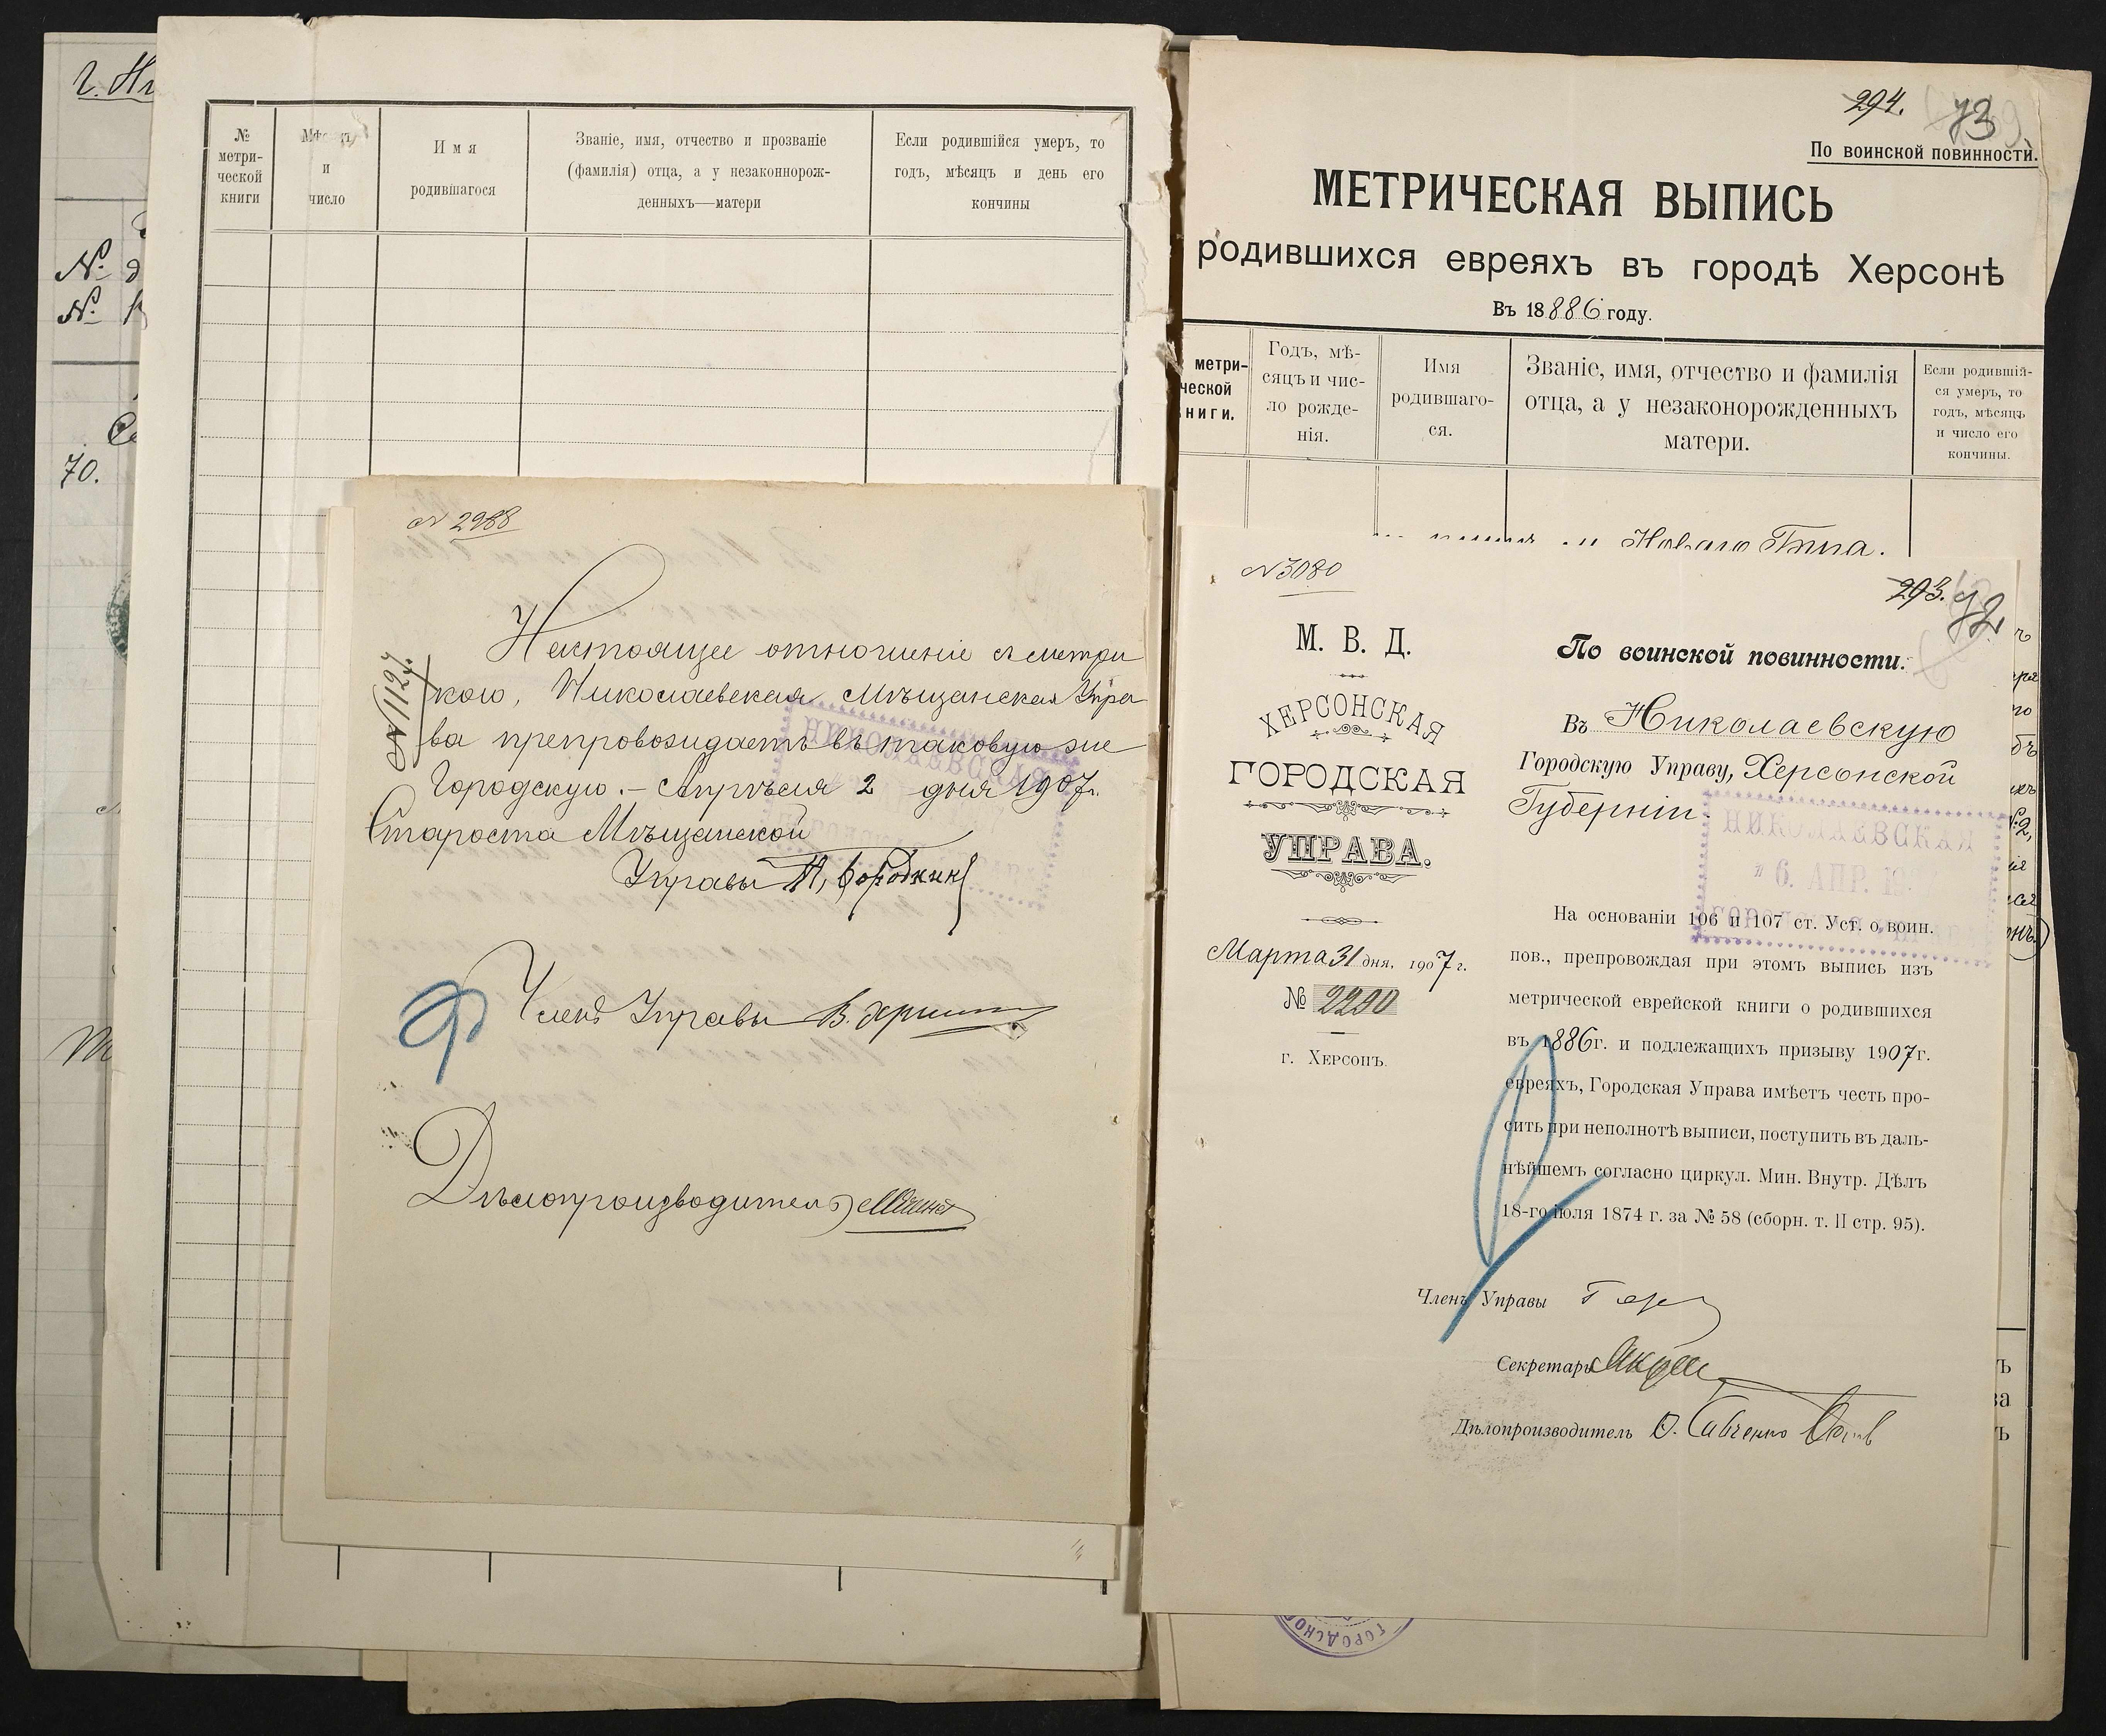 №
метри-
ческой
книги
Мѣсяцъ
и
число
Имя
родившагося
Званіе, имя, отчество и прозваніе
(фамилія) отца, а у незаконнорож-
денныхъ—матери
Если родившійся умеръ, то
годъ, мѣсяцъ и день его
кончины
г. Ни
№
№
70.
№ 2988
№ 1127.
Настоящее отношеніе съ метри
кою, Николаевская Мѣщанская Упра
ва препровождаетъ въ таковую же
Городскую. — Апрѣля 2 дня 1907 г.
Староста Мѣщанской
Управы
НИКОЛАЕВСКАЯ
Членъ Управы
Дѣлопроизводитель
294. 73
По воинской повинности.
МЕТРИЧЕСКАЯ ВЫПИСЬ
родившихся евреяхъ въ городѣ Херсонѣ
Въ 18886 году.
метри-
ческой
ниги.
Годъ, мѣ-
сяцъ и чис-
ло рожде-
нія.
Имя
родившаго-
ся.
Званіе, имя, отчество и фамилія
отца, а у незаконорожденныхъ
матери.
Если родившій-
ся умеръ, то
годъ, мѣсяцъ
и число его
кончины.
№ 3080
293. 72
М. В. Д.
ХЕРСОНСКАЯ
ГОРОДСКАЯ
УПРАВА.
Марта 31 дня, 1907 г.
№ 2290
г. Херсонъ.
По воинской повинности.
Въ Николаевскую
Городскую Управу, Херсонской
Губерніи.
НИКОЛАЕВСКАЯ
6. АПР. 19
На основаніи 106 и 107 ст. Уст. о воин.
пов., препровождая при этомъ выпись изъ
метрической еврейской книги о родившихся
въ 1886г. и подлежащихъ призыву 1907г.
евреяхъ, Городская Управа имѣетъ честь про-
сить при неполнотѣ выписи, поступить въ даль-
нѣйшемъ согласно циркул. Мин. Внутр. Дѣлъ
18-го іюля 1874 г. за № 58 (сборн. т. II стр. 95).
Членъ Управы
Секретарь
Дѣлопроизводитель О. Савченко
ГОРОДСКО